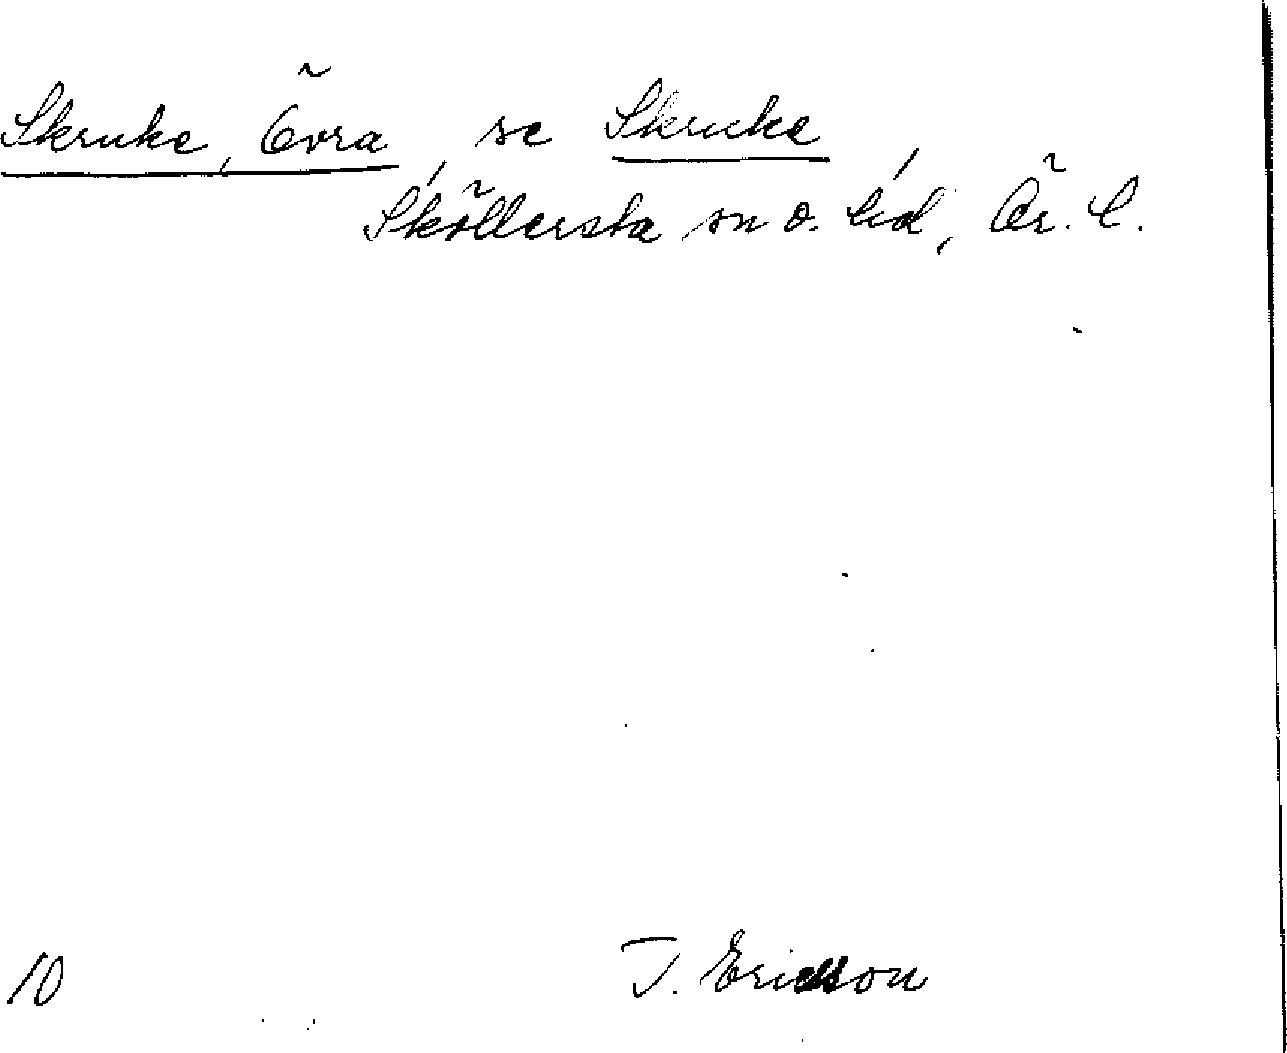 Skruke, Övra, se Skruke,
Sköllersta sn o. hd, Ör. l.
10 T. Ericsson